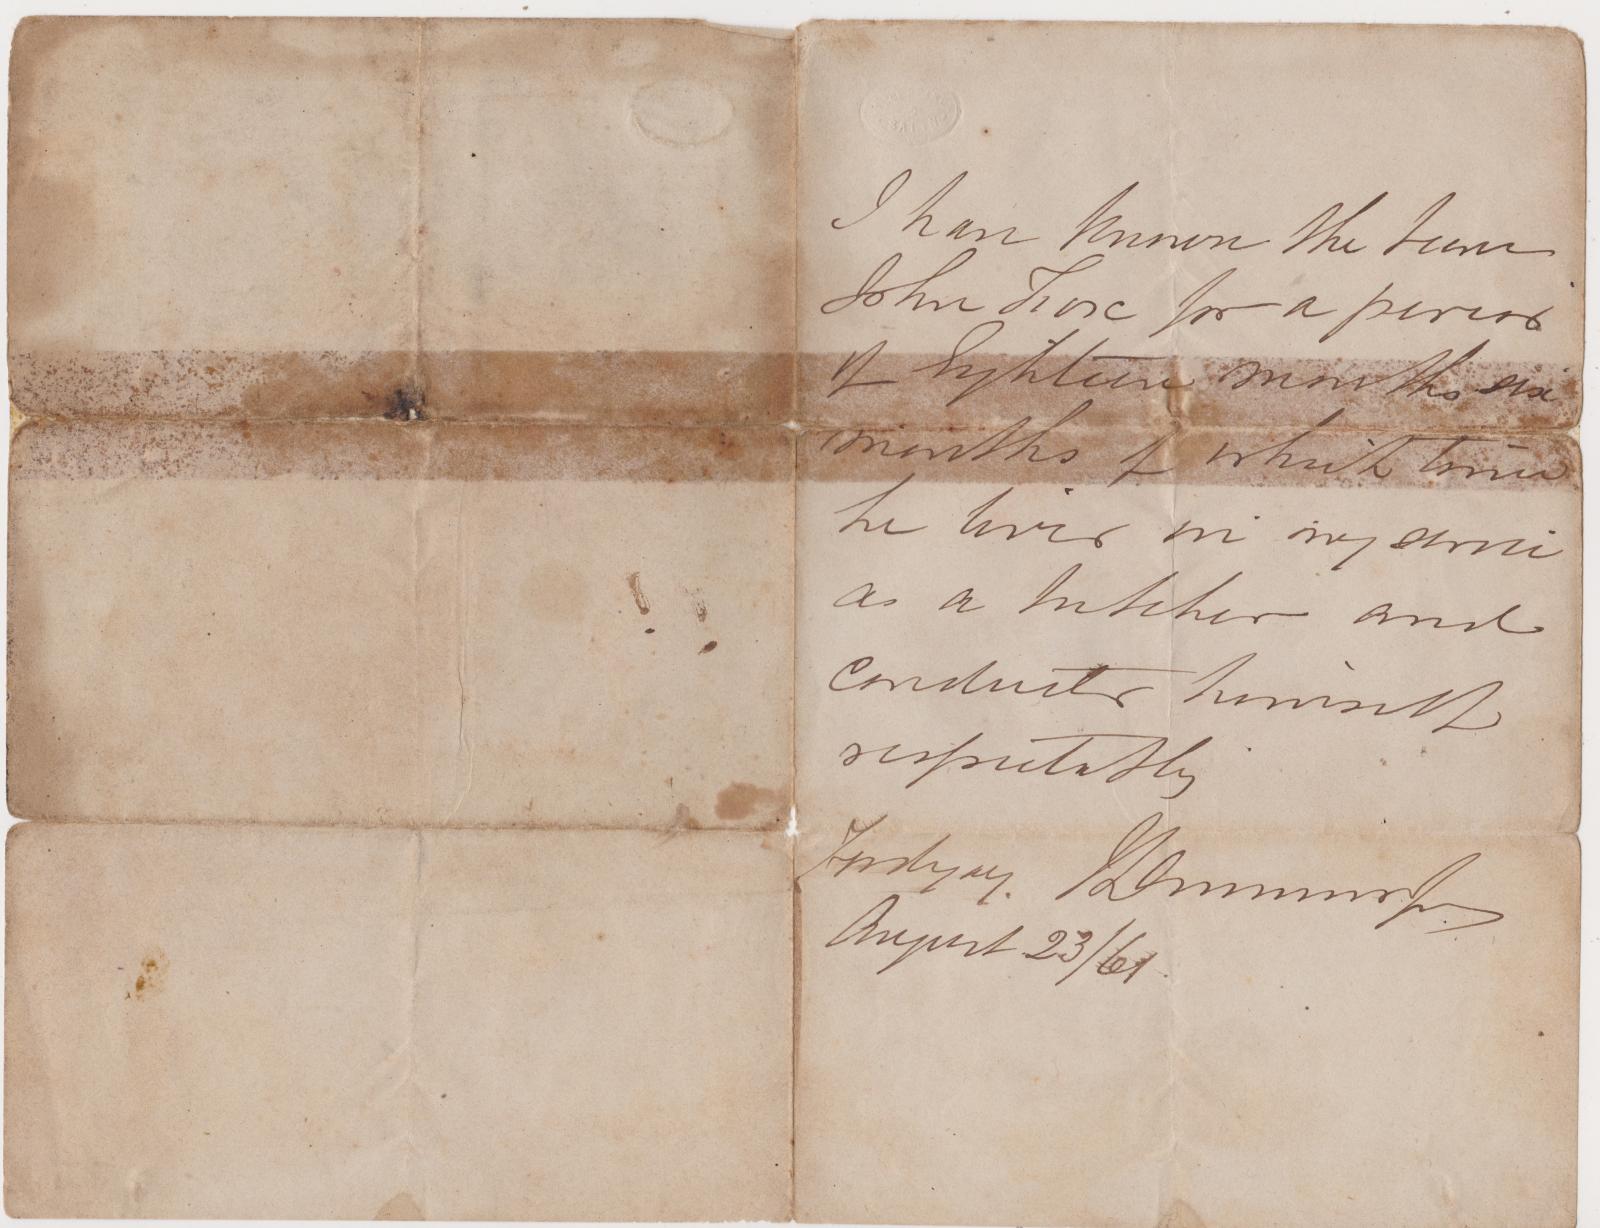 I have known the bearer
John Fox for a period
of Eighteen months six
months of which time
he lived in my service
as a butcher and
conducted himself
respectably
August 23/61